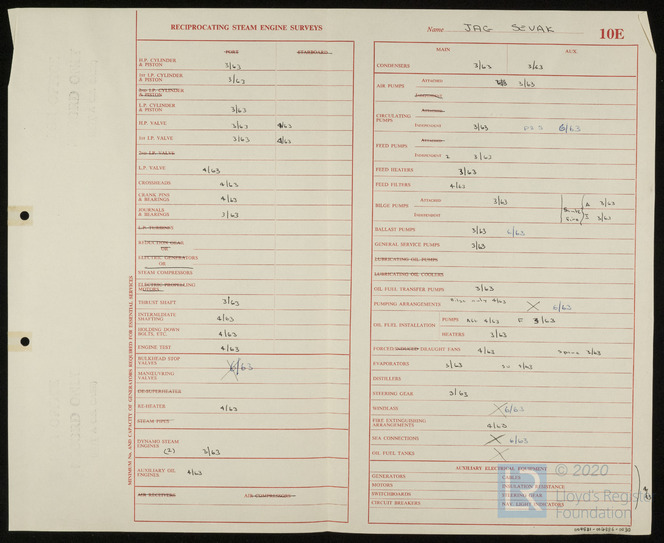 RECIPROCATING STEAM ENGINE SURVEYS
Name JAG SEVAK 10E
PORT STARBOARD
H.P. CYLINDER & PISTON 3/63
1st I.P. CYLINDER & PISTON 3/63
2nd I.P. CYLINDER & PISTON
L.P. CYLINDER & PISTON 3/63
H.P. VALVE 3/63 4/63
1st I.P. VALVE 3/63 4/63
2nd I.P. VALVE
L.P. VALVE 4/63
CROSSHEADS 4/63
CRANK PINS & BEARINGS 4/63
JOURNALS & BEARINGS 3/63
L.P. TURBINES
REDUCTION GEAR
OR
ELECTRIC GENERATORS
OR
STEAM COMPRESSORS
ELECTRIC PROPELLING MOTORS
THRUST SHAFT 3/63
INTERMEDIATE SHAFTING 4/63
HOLDING DOWN BOLTS, ETC. 4/63
ENGINE TEST 4/63
BULKHEAD STOP VALVES
MANŒUVRING VALVES 6/63
DE-SUPERHEATER
RE-HEATER 4/63
STEAM PIPES
DYNAMO STEAM ENGINES (2) 3/63
AUXILIARY OIL ENGINES 4/63
AIR RECEIVERS AIR COMPRESSORS
MINIMUM No. AND CAPACITY OF GENERATORS REQUIRED FOR ESSENTIAL SERVICES
MAIN AUX.
CONDENSERS 3/63 3/63
AIR PUMPS Attached 3/63
Independent
CIRCULATING PUMPS Attached
Independent 3/63 6/63
FEED PUMPS Attached
Independent 2 3/63
FEED HEATERS 3/63
FEED FILTERS 4/63
BILGE PUMPS Attached 3/63 A 3/63
Independent I 3/63
BALLAST PUMPS 3/63 6/63
GENERAL SERVICE PUMPS 3/63
LUBRICATING OIL PUMPS
LUBRICATING OIL COOLERS
OIL FUEL TRANSFER PUMPS 3/63
PUMPING ARRANGEMENTS 4/63 6/63
OIL FUEL INSTALLATION PUMPS 4/63 3/63
HEATERS 3/63
FORCED/INDUCED DRAUGHT FANS 4/63 3/63
EVAPORATORS 3/63 4/63
DISTILLERS
STEERING GEAR 3/63
WINDLASS 6/63
FIRE EXTINGUISHING ARRANGEMENTS 4/63
SEA CONNECTIONS 6/63
OIL FUEL TANKS
AUXILIARY ELECTRICAL EQUIPMENT
GENERATORS CABLES
MOTORS INSULATION RESISTANCE
SWITCHBOARDS STEERING GEAR
CIRCUIT BREAKERS NAV. LIGHT INDICATORS
© 2020
Lloyd's Register
Foundation